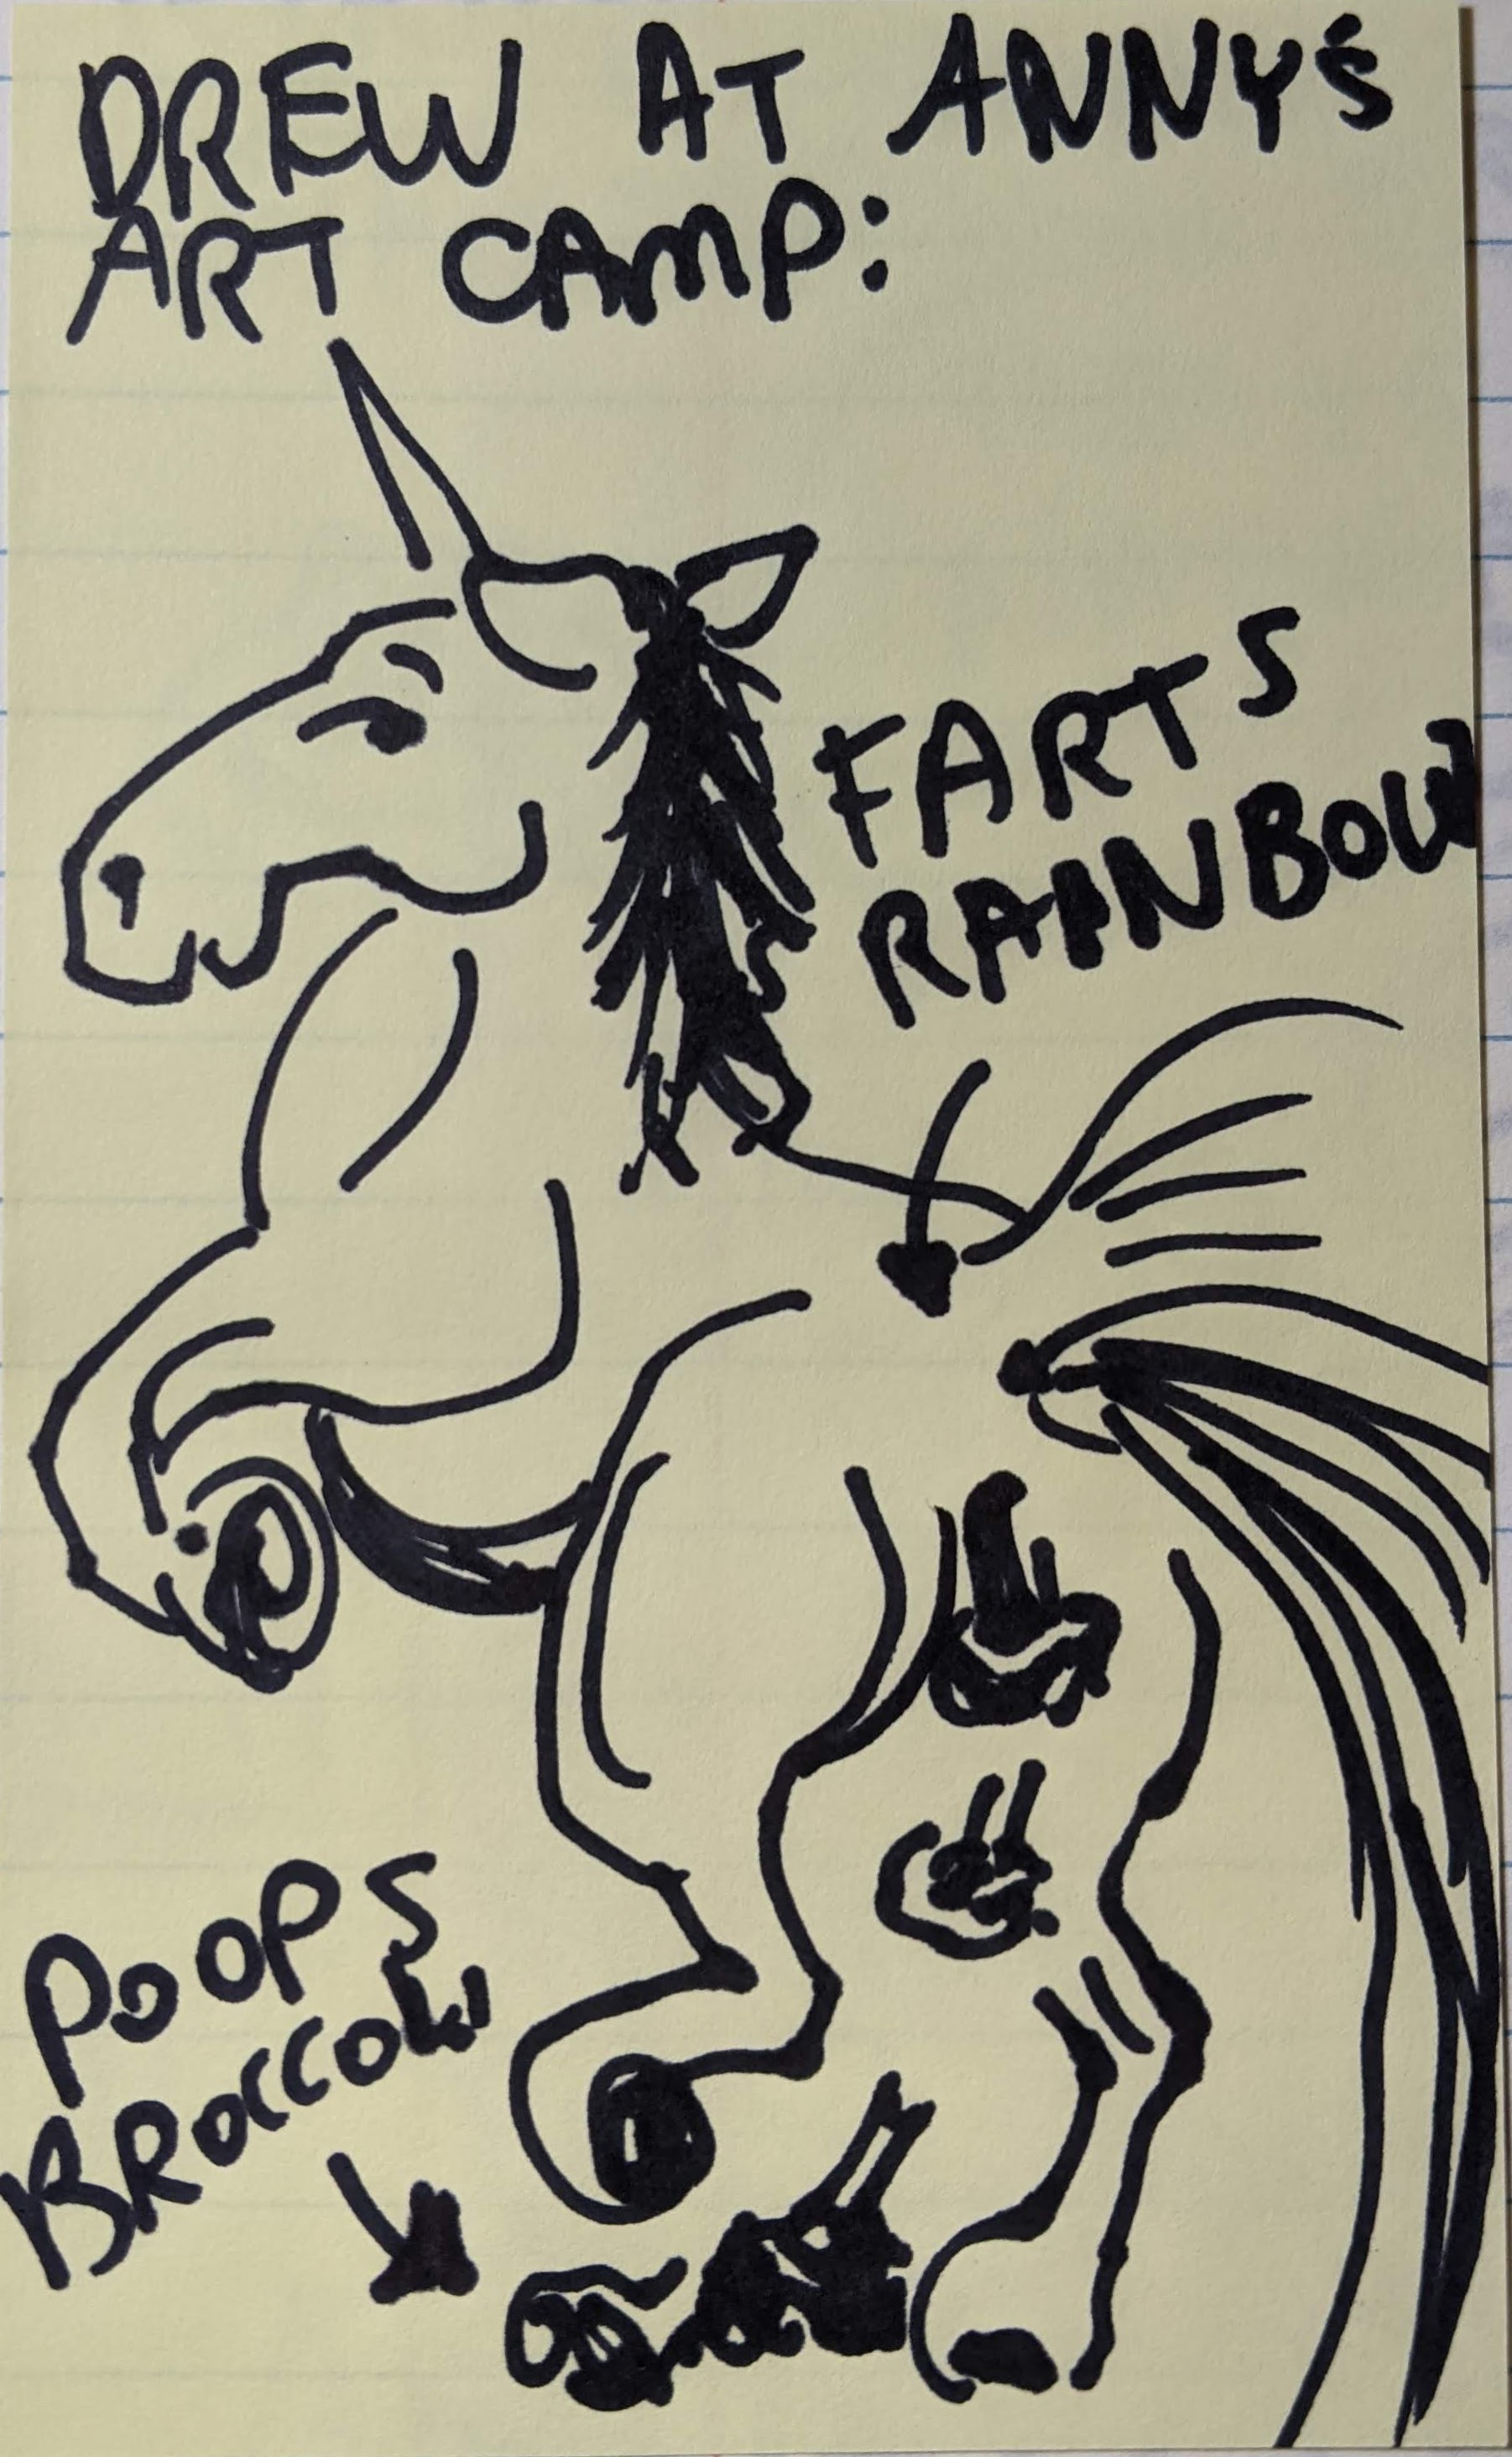 DREW AT ANNY'S
ART CAMP:
FARTS
RAINBOW
POOPS
BROCCOLI